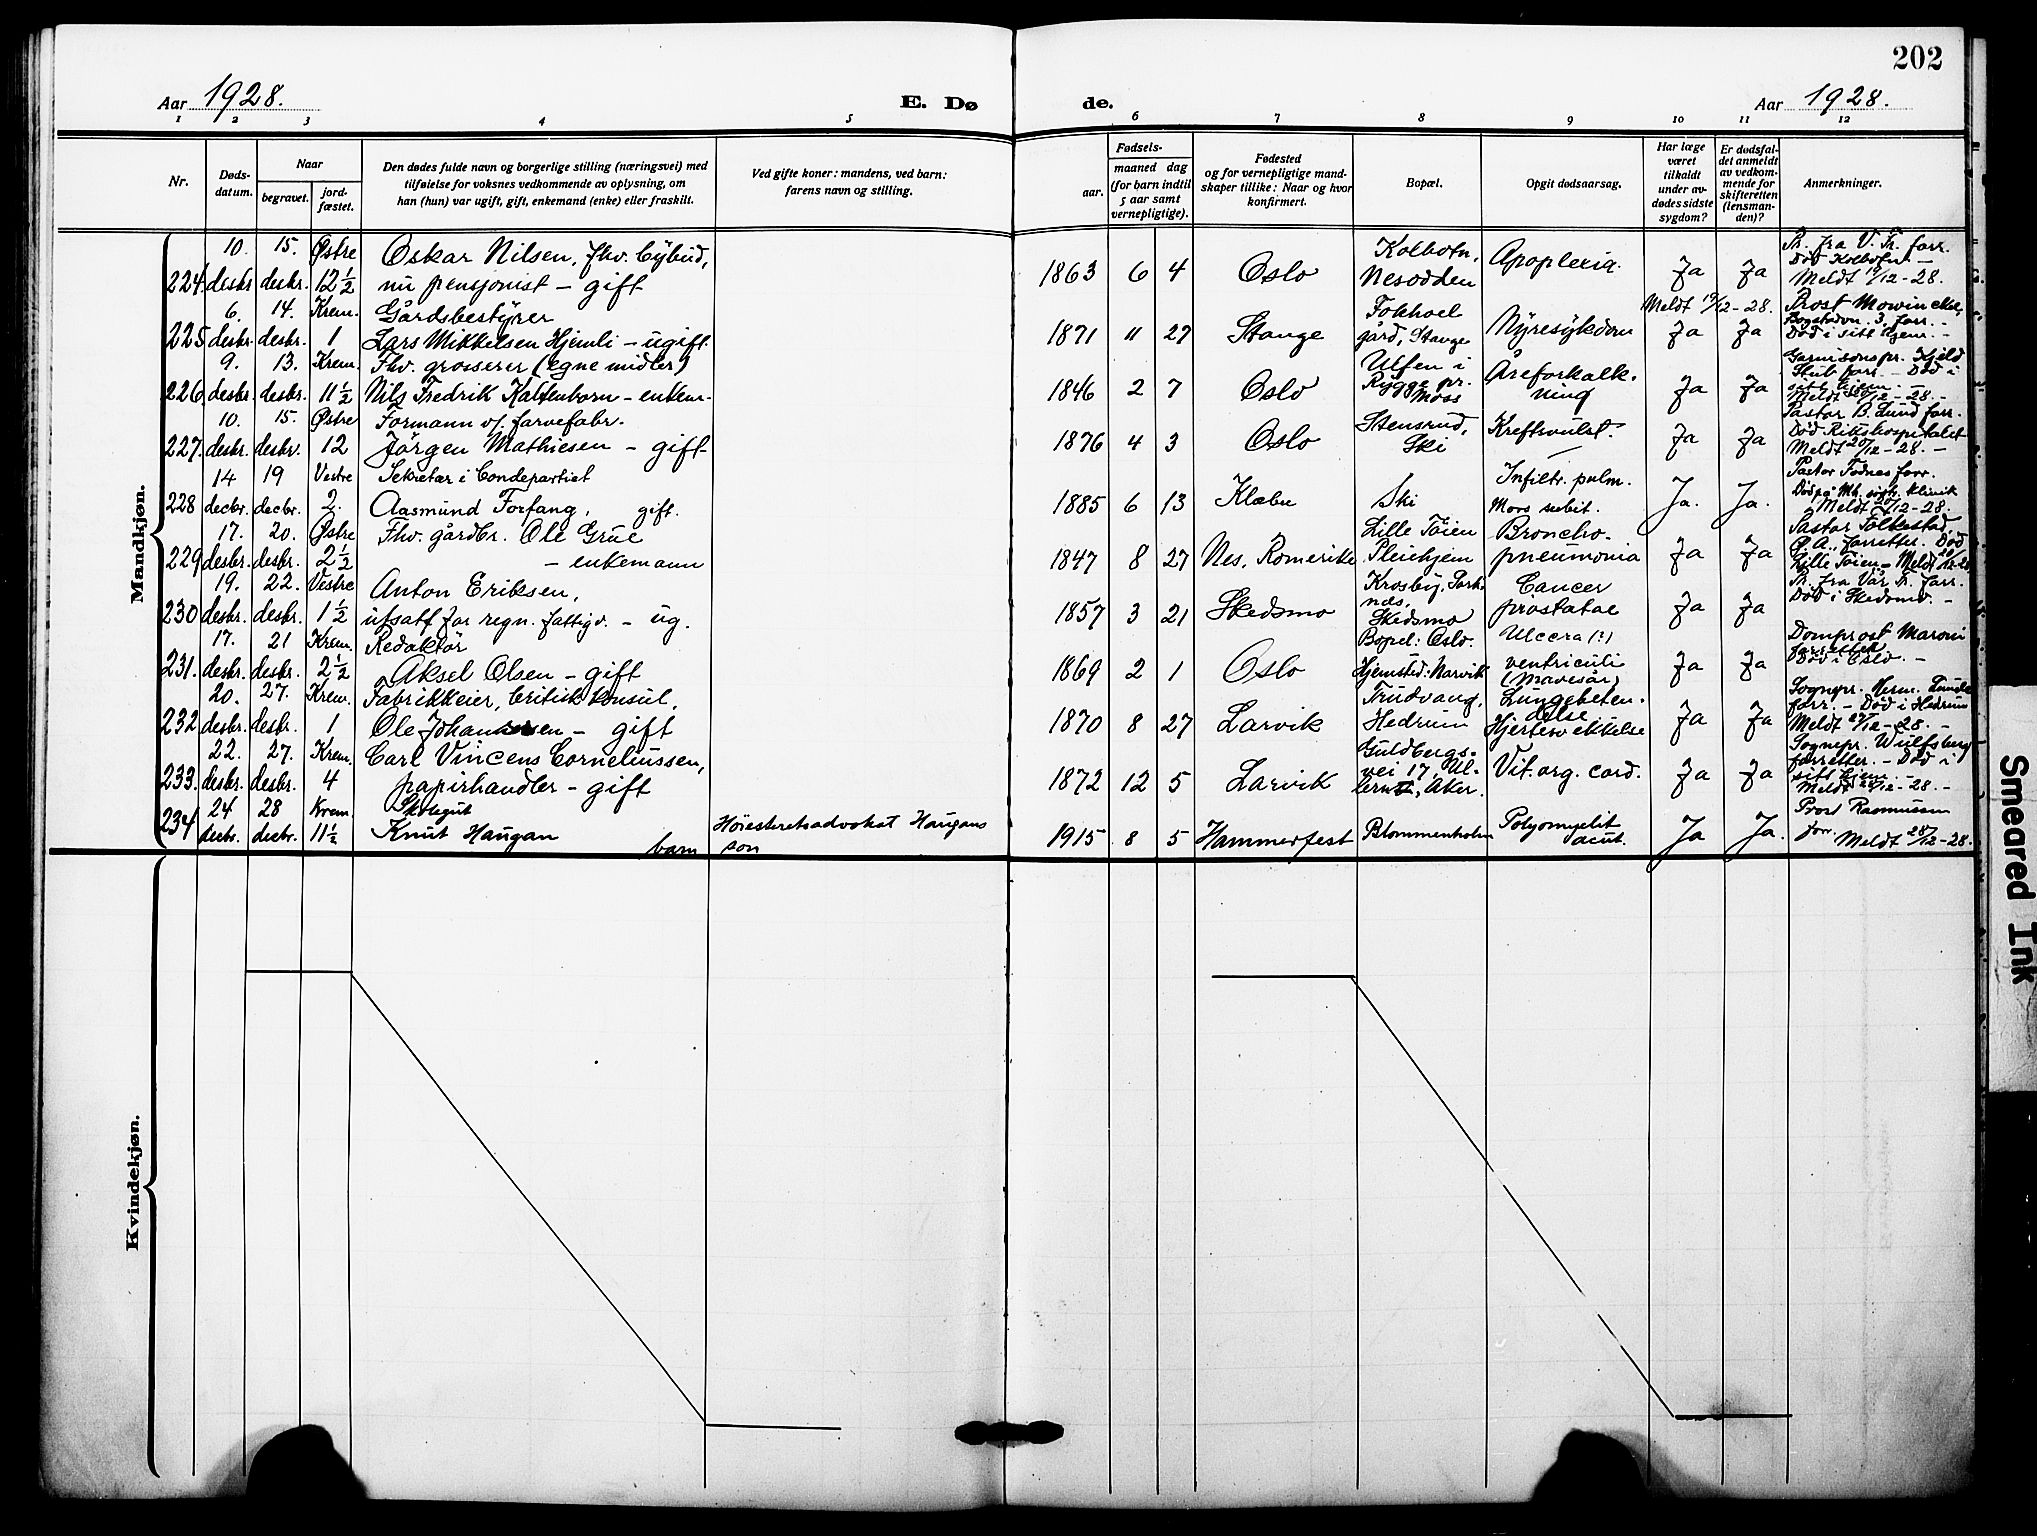 202
Aar 1928.
E. Dø de.
Aar 1928.
1 2 3 4 5 6 7 8 9 10 11 12
Nr.
Døds-
datum.
Naar
begravet.
jord-
fæstet.
Den dødes fulde navn og borgerlige stilling (næringsvei) med
tilføielse for voksnes vedkommende av oplysning, om
han (hun) var ugift, gift, enkemand (enke) eller fraskilt.
Ved gifte koner: mandens, ved barn:
farens navn og stilling.
Fødsels-
aar.
maaned dag
(for barn indtil
5 aar samt
vernepligtige).
Fødested
og for vernepligtige mand-
skaper tillike: Naar og hvor
konfirmert.
Bopæl.
Opgit dødsaarsag.
Har læge
været
tilkaldt
under av-
dødes sidste
sygdom?
Er dødsfal-
det anmeldt
av vedkom-
mende for
skifteretten
(lensman-
den)?
Anmerkninger.
Mandkjøn.
10. 15. Østre Oskar Nilsen, fhv. bybud, Kolbotn, Apoplexia. Pr. fra V. Fr. forr.
Død Kolbotn -
224. desbr. desbr. 12 1/2 nu pensjonist - gift 1863 6 4 Oslo Nesodden Ja Ja Meldt 19/12-28.
6. 14. Krem. Gårdsbestyrer Fokhoel Meldt 19/12-28. Prost Mowinckel,
225 desbr. desbr. 1 Lars Mikkelsen Hjemli - ugift. 1871 11 27 Stange gård, Stange Nyresykdom Ja Ja Død i sitt hjem. -
9. 13. Krem. Fhv. grosserer (egne midler) Ulfen i Åreforkalk- Garnisonspr. Kjeld
Stub forr. - Død i
226. desbr. desbr. 11 1/2 Nils Fredrik Kaltenborn - enkem. 1846 2 7 Oslo Rygge pr. Moss ning Ja Ja sitt hjem. -
Meldt 20/12-28. -
10. 15. Østre Formann v/ farvefabr. Stensrud, Kreftsvulst. Pastor B. Lund forr.
Død Rikshospitalet
227. desbr. desbr. 12 Jørgen Mathiesen - gift - 1876 4 3 Oslo Ski Ja Ja Meldt 20/12-28. -
14 19 Vestre Sekretær i Infiltr. pulm. Pastor forr.
228 decbr. decbr. 2. Aasmund Forfang, gift. 1885 6 13 Klæbu Ski Mors subit. Ja. Ja. Klinik
Meldt 20/12-28.
17. 20. Østre Fhv. gårdbr. Ole Grue Lille Tøien Broncho- Pastor Folkestad
229 desbr. desbr. 2 1/2 - enkemann 1847 8 27 Nes, Romerike Pleiehjem pneumonia Ja Ja Ø. A., forretter. Død
Lille Tøien - Meldt
19. 22. Vestre Anton Eriksen, Krosby, Cancer Pr. fra Vår Fr. forr.
230 desbr. desbr. 1 1/2 utsatt for regn. fattigv. - ug. 1857 3 21 Skedsmo Skedsmo prostatae Ja Ja Død i Skedsmo. -
17. 21 Krem. Redaktør Bopel: Oslo. Ulcera (?) Domprost Maroni
forrettet
231. desbr. desbr. 2 1/2 Aksel Olsen - gift 1869 2 1 Oslo Hjemsted: Narvik ventriculi Ja Ja Død i Oslo. -
(Mavesår)
20. 27. Krem. Fabrikkeier, britisk konsul, Trudvang, Lungebeten- Sognepr. Herm. Lunde
forr. - Død i Hedrum
232 desbr. desbr. 1 Ole Johannsen - gift 1870 8 27 Larvik Hedrum delse Ja Ja Meldt 27/12-28. -
Hjertesvekkelse
22. 27. Krem. Carl Vincens Corneliussen, Guldbergs- Sognepr. Wulfsberg
forretter. - Død i
233. desbr. desbr. 4 papirhandler - gift 1872 12 5 Larvik vei 17, Ul- Vit. org. cord. Ja Ja sitt hjem. -
lern, Aker. Meldt 28/12-28. -
24 28 Krem. Skolegut Prost Rasmussen
234 decbr. decbr. 11 1/2 Knut Haugan barn Høiesteretsadvokat Haugans son 1915 8 5 Hammerfest Blommenholm Polyomyelit acut. Ja Ja. forr. Meldt 28/12-28.
Kvindekjøn.
Smeared Ink